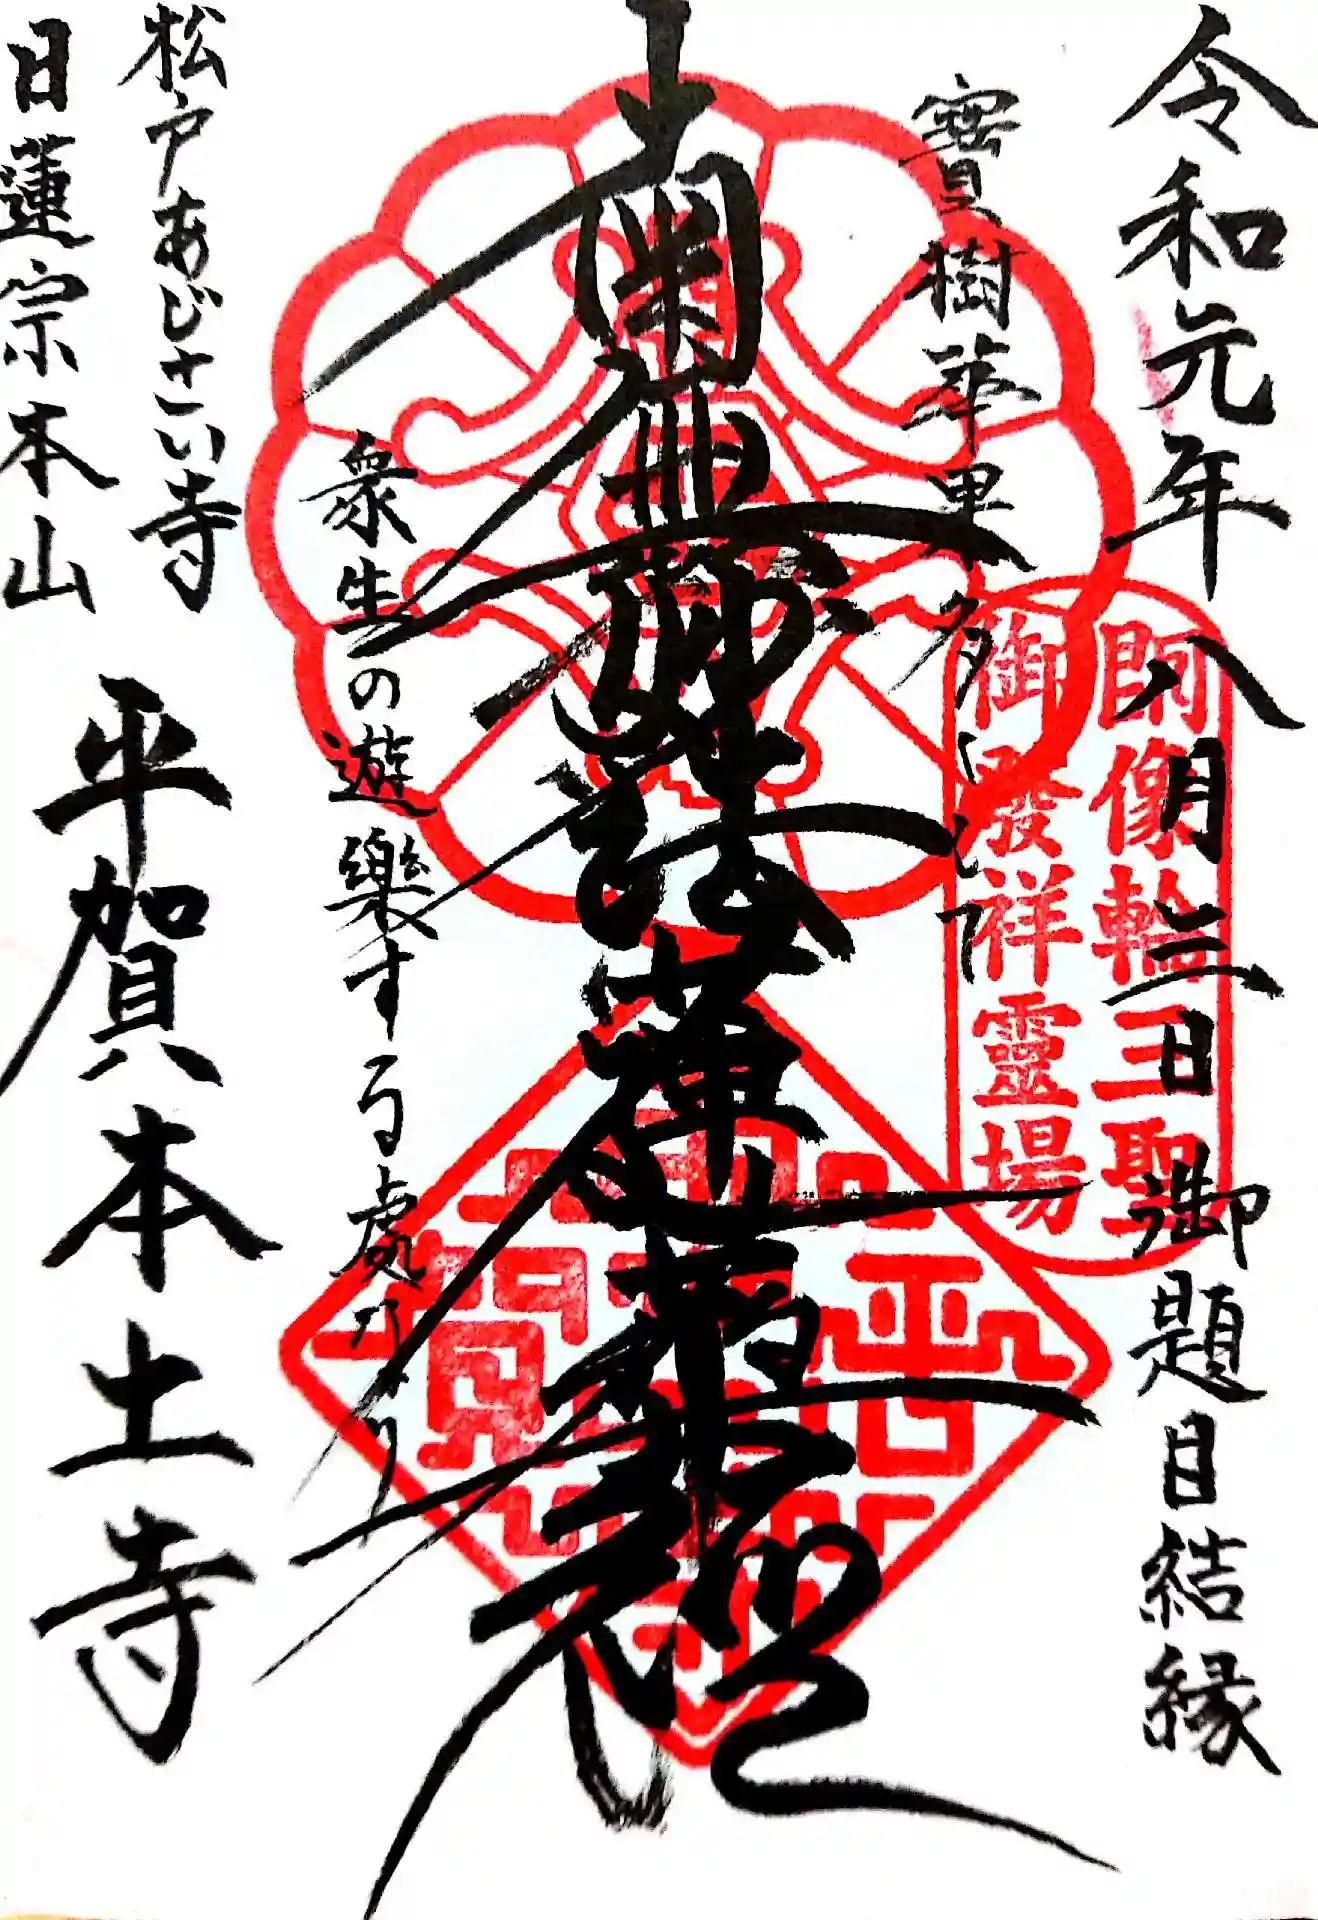 令和元年八月三日 御題目結縁
寶樹華果多くして
南無妙法蓮華経
衆生の遊樂する處なり
松戸あじさい寺
日蓮宗本山
平賀本土寺
師像輪三聖
御發祥靈場